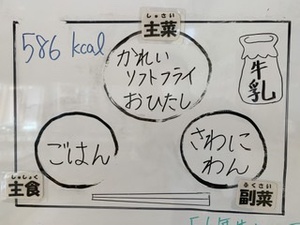 しゅさい
主菜
586 kcal
かれい
ソフトフライ
おひたし
牛乳
ごはん
さわに
わん
しゅしょく
主食
ふくさい
副菜